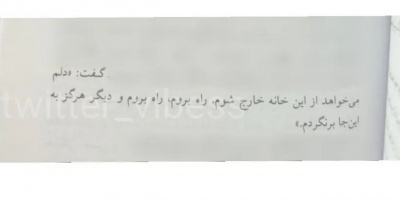 گفت: «دلم
می‌خواهد از این خانه خارج شوم، راه بروم، راه بروم و دیگر هرگز به
این‌جا برنگردم.»
twitter_vibess